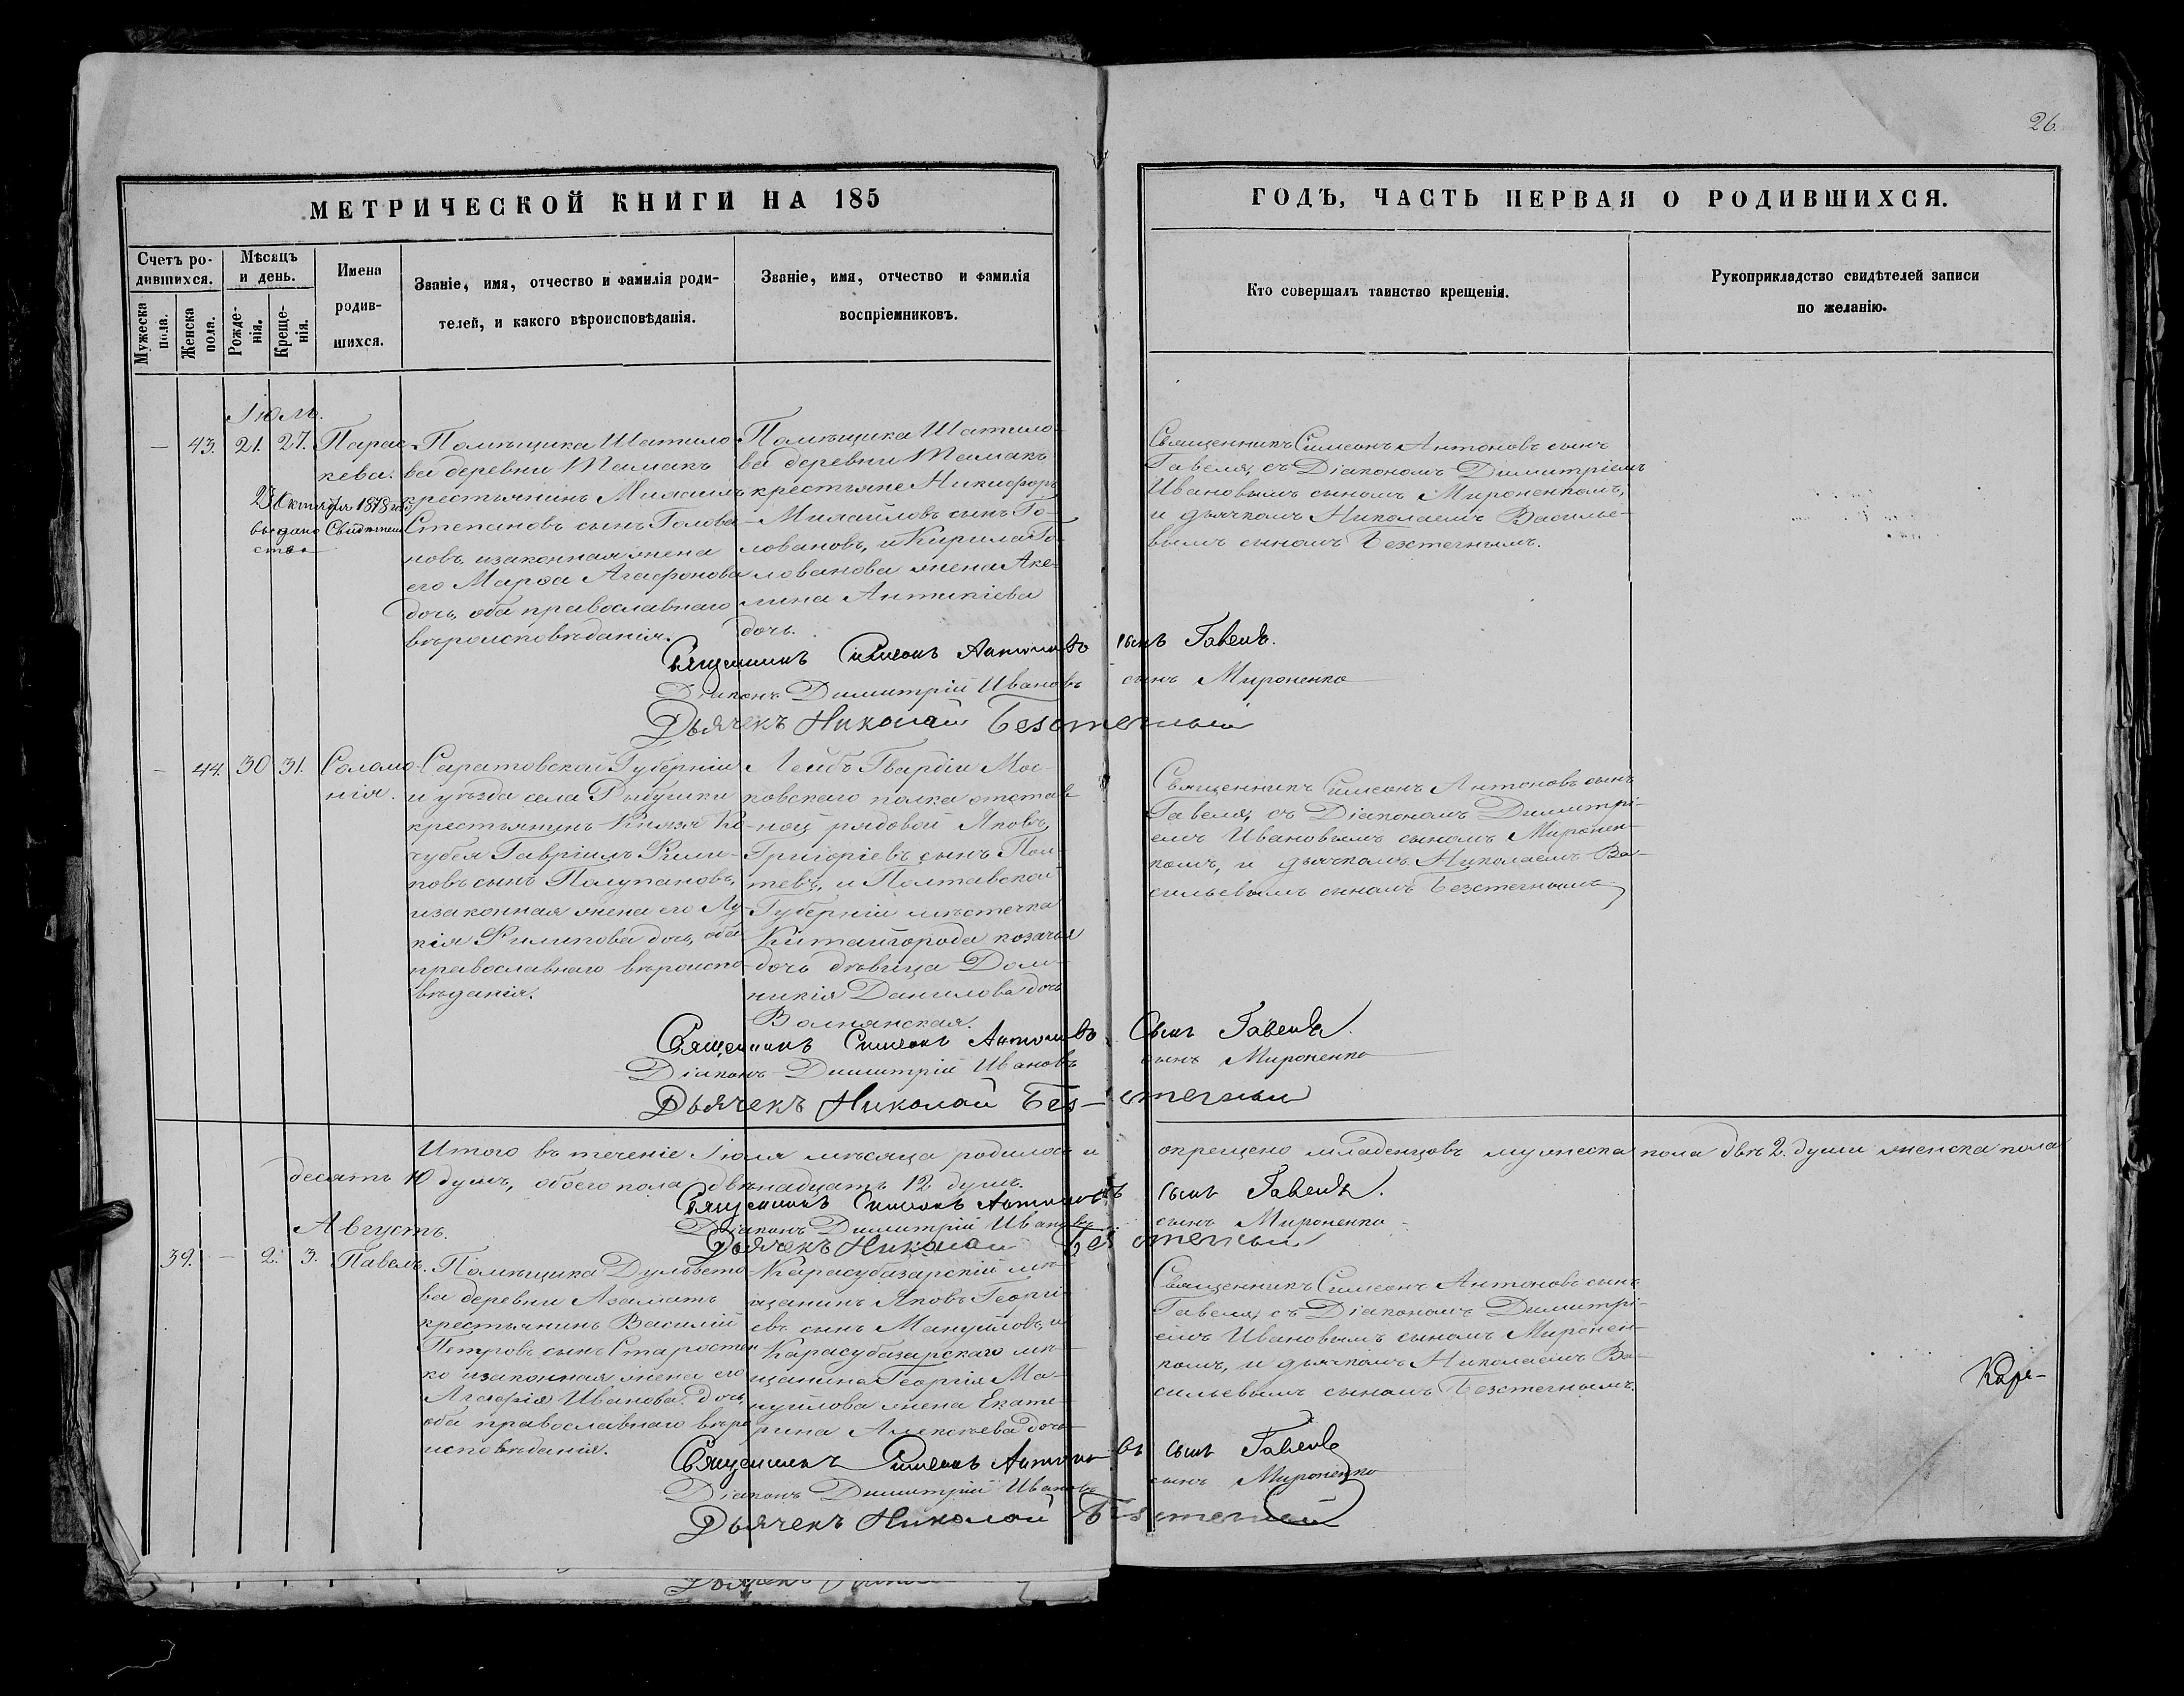 26.
МЕТРИЧЕСКОЙ КНИГИ НА 185
ГОДЪ, ЧАСТЬ ПЕРВАЯ О РОДИВШИХСЯ.
Счетъ ро-
дившихся.
Мужеска
пола.
Женска
пола.
Мѣсяцъ
и день.
Рожде-
нія.
Креще-
нія.
Имена
родив-
шихся.
Званіе, имя, отчество и фамилія роди-
телей, и какого вѣроисповѣданія.
Званіе, имя, отчество и фамилія
воспріемниковъ.
Кто совершалъ таинство крещенія.
Рукоприкладство свидѣтелей записи
по желанію.
Іюль.
— 43. 21. 27.
Парас-
кева.
23 Октября 1878 года
выдано Свидѣтель
ство
Помѣщика Шатило-
ва деревни Тамакъ
крестьянинъ Михаилъ
Степановъ сынъ Голова-
новъ, и законная жена
его Марфа Агафонова
дочь, оба православнаго
вѣроисповѣданія.
Помѣщика Шатило-
ва деревни Тамакъ
крестьяне Никифоръ
Михайловъ сынъ Го-
ловановъ, и Кирила Го-
лованова жена Аке-
лина Антипіева
дочь.
Священникъ Симеонъ Антоновъ сынъ
Гавеля, съ Діакономъ Димитріемъ
Ивановымъ сыномъ Мироненкомъ,
и дьячкомъ Николаемъ Василье-
вымъ сыномъ Безстечнымъ.
Священникъ Симеонъ Антоновъ сынъ Гавеля.
Діаконъ Димитрій Ивановъ сынъ Мироненко
Дьячекъ Николай Безстечный
— 44. 30 31.
Соломо-
нія.
Саратовской Губерніи
и уѣзда села Рыбушки
крестьянинъ Князя Ко-
чубея Гавріилъ Фили-
повъ сынъ Полупановъ,
и законная жена его Лу-
кія Филипова дочь, оба
православнаго вѣроиспо-
вѣданія.
Лейбъ Гвардіи Мос-
ковскаго полка отстав-
ной рядовой Яковъ
Григоріевъ сынъ
и Полтавской
Губерніи мѣстечка
Китайгорода козачья
дочь дѣвица Дом-
никія Данилова дочь
Волнянская.
Священникъ Симеонъ Антоновъ сынъ
Гавеля, съ Діакономъ Димитрі-
емъ Ивановымъ сыномъ Миронен-
комъ, и дьячкомъ Николаемъ Ва-
сильевымъ сыномъ Безстечнымъ
Священникъ Симеонъ Антоновъ Сынъ Гавеля.
Діаконъ Димитрій Ивановъ сынъ Мироненко
Дьячекъ Николай Без-стечный
Итого въ теченіе Іюля мѣсяца родилось и окрещено младенцовъ мужеска пола двѣ 2. души женска пола
десять 10 душъ, обоего пола двѣнадцать 12 душъ.
Священникъ Симеонъ Антоновъ сынъ Гавеля.
Діаконъ Димитрій Ивановъ сынъ Мироненко
Дьячекъ Николай Безстечный
Августъ.
39. — 2. 3. Павелъ.
Помѣщика Дульвето-
ва деревни Азаматъ
крестьянинъ Василій
Петровъ сынъ Старостен-
ко и законная жена его
Агафія Иванова дочь,
оба православнаго вѣро-
исповѣданія.
Карасубазарскій мѣ-
щанинъ Яковъ Георгі-
евъ сынъ Мануйловъ, и
Карасубазарскаго мѣ-
щанина Георгія Ма-
нуйлова жена Екате-
рина Алексѣева дочь
Священникъ Симеонъ Антоновъ сынъ
Гавеля, съ Діакономъ Димитрі-
емъ Ивановымъ сыномъ Миронен-
комъ, и дьячкомъ Николаемъ Ва-
сильевымъ сыномъ Безстечнымъ.
Священникъ Симеонъ Антоновъ сынъ Гавеля
Діаконъ Димитрій Ивановъ сынъ Мироненко
Дьячекъ Николай Безстечный